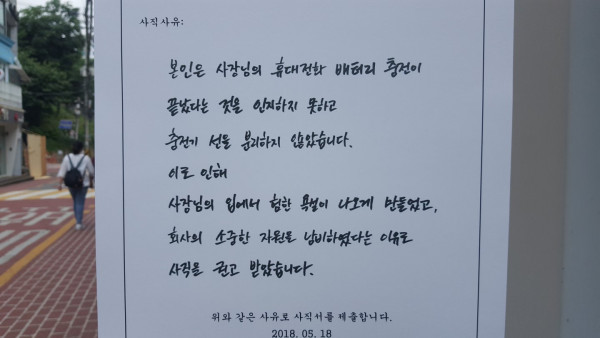 사직사유:
본인은 사장님의 휴대전화 배터리 충전이
끝났다는 것을 인지하지 못하고
충전기 선을 분리하지 않았습니다.
이로 인해
사장님의 입에서 험한 욕설이 나오게 만들었고,
회사의 소중한 자원을 낭비하였다는 이유로
사직을 권고 받았습니다.
위와 같은 사유로 사직서를 제출합니다.
2018. 05. 18